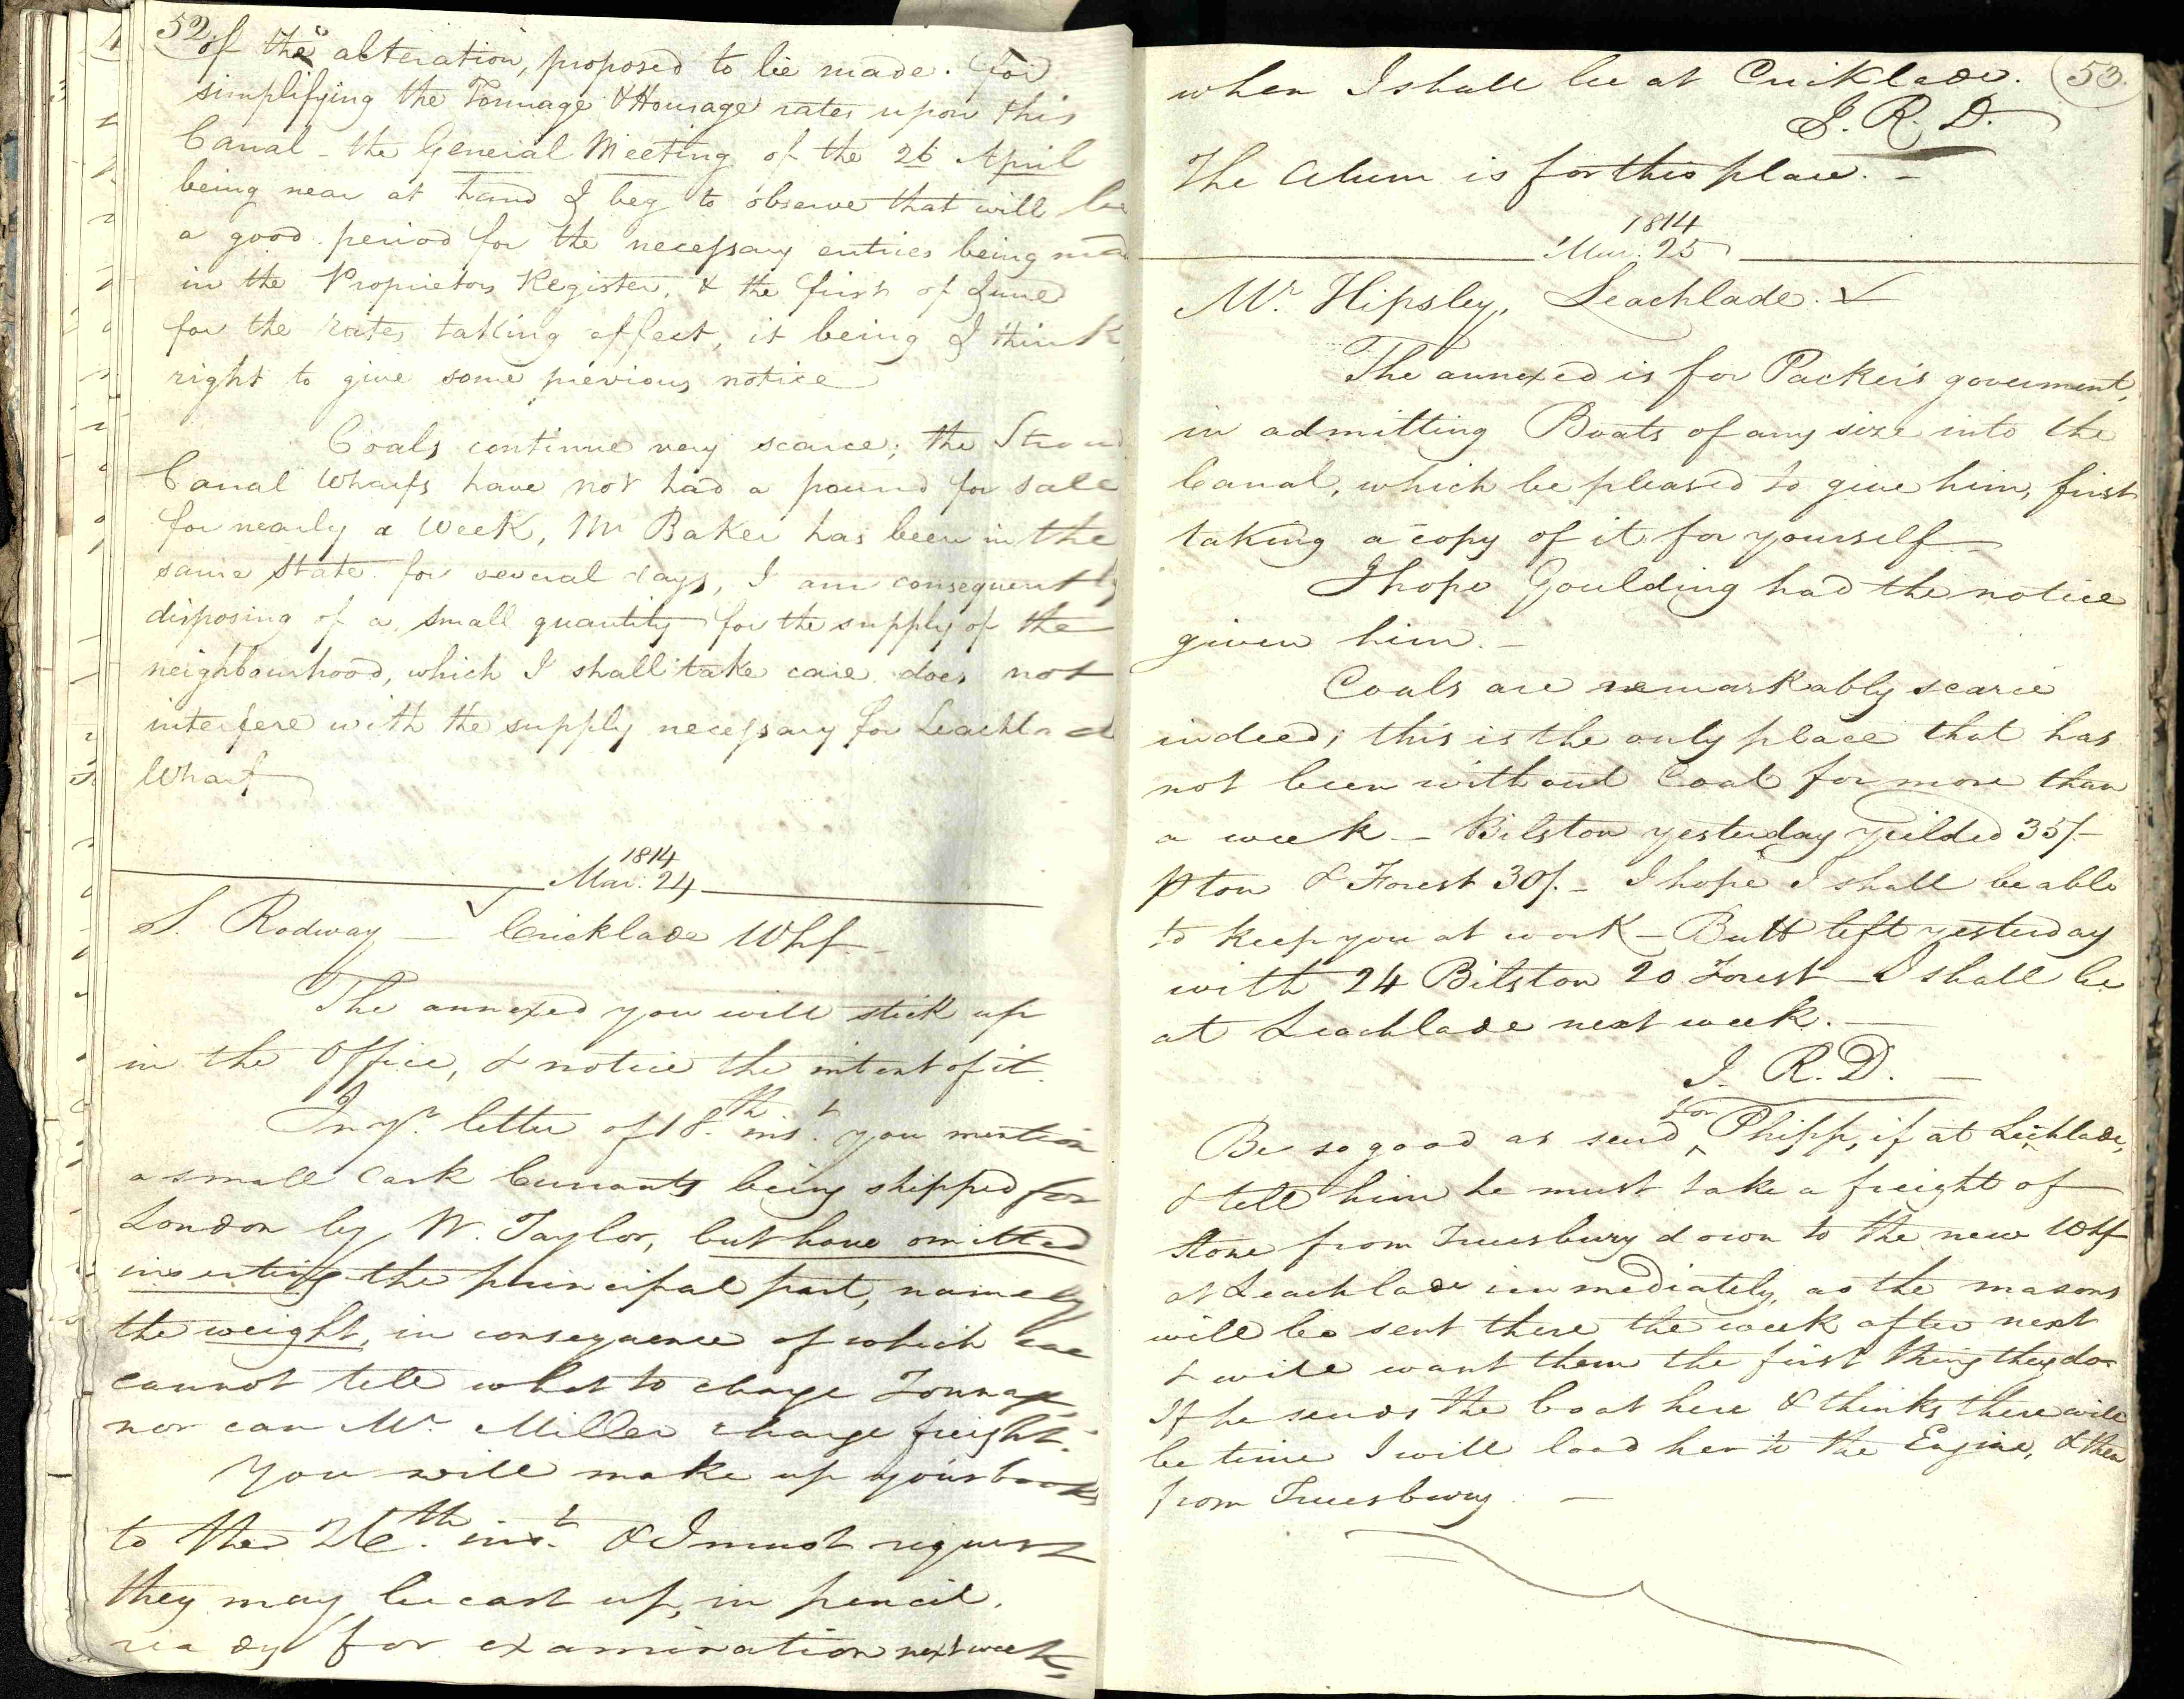 52
of the alteration, proposed to be made. for
simplifying the Tonnage & Housage rates upon this
Canal - the General Meeting of the 26 April
being near at hand I beg to observe that will be
a good period for the necessary entries being mad
in the Proprietors Register, & the first of June
for the rates taking effect, it being I think
right to give some previous notice
Coals continue very scarce; the Stroud
Canal Wharfs have not had a pound for sale
for nearly a week, Mr Baker has been in the
same state for several days, I am consequently
disposing of a small quantity for the supply of the
neighbourhood, which I shall take care does not
interfere with the supply necessary for Leachlad
Wharf
1814
Mar. 24
S. Rodway — Cricklade Whf. -
The annexed you will stick up
in the Office, & notice the intent of it.
In yr. letter of 18th. inst. you mention
a small Cask Currants being shipped for
London by W. Taylor, but have omitted
inserting the principal part, namely
the weight, in consequence of which we
cannot tell what to charge Tonnage,
nor can Mr. Miller charge freight.
You will make up your books
to the 26th. inst. & I must request
they may be cast up, in pencil.
ready for examination next week,
53.
when I shall be at Cricklade.
J. R. D.
The Alum is for this place. -
1814
Mar. 25
Mr. Hipsley, Leachlade.
The annexed is for Packer's goverment,
in admitting Boats of any size into the
Canal, which be pleased to give him, first
taking a copy of it for yourself -
I hope Goulding had the notice
given him. -
Coals are remarkably scarce
indeed; this is the only place that has
not been without Coal for more than
a week - Bilston yesterday yeilded 35/-
p ton & Forest 30/. - I hope I shall be able
to keep you at work - Butt left yesterday
with 24 Bilston 20 Forest - I shall be
at Leachlade next week. -
J. R. D. -
Be so good as send ^for Phipp, if at Lechlade,
& tell him he must take a freight of
Stone from Trewsbury down to the new Whf
at Leachlade immediately, as the masons
will be sent there the week after next
& will want them the first thing they do -
If he sends the boat here & thinks there will
be time I will load her to the Engine, & then
from Trewsbury. -